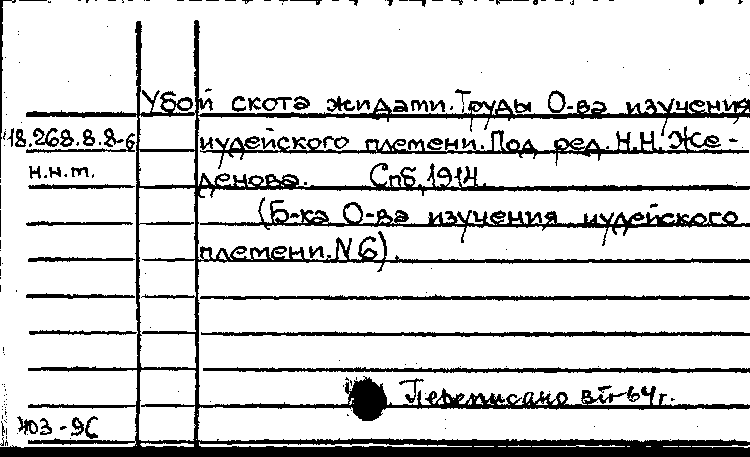 Убой скота жидами. Труды О-ва изучения
18.268.8.8-6 иудейского племени. Под ред. Н.Н. Же-
н.н.т. денова. Спб, 1914.
(Б-ка О-ва изучения иудейского
племени. N 6).
Переписано